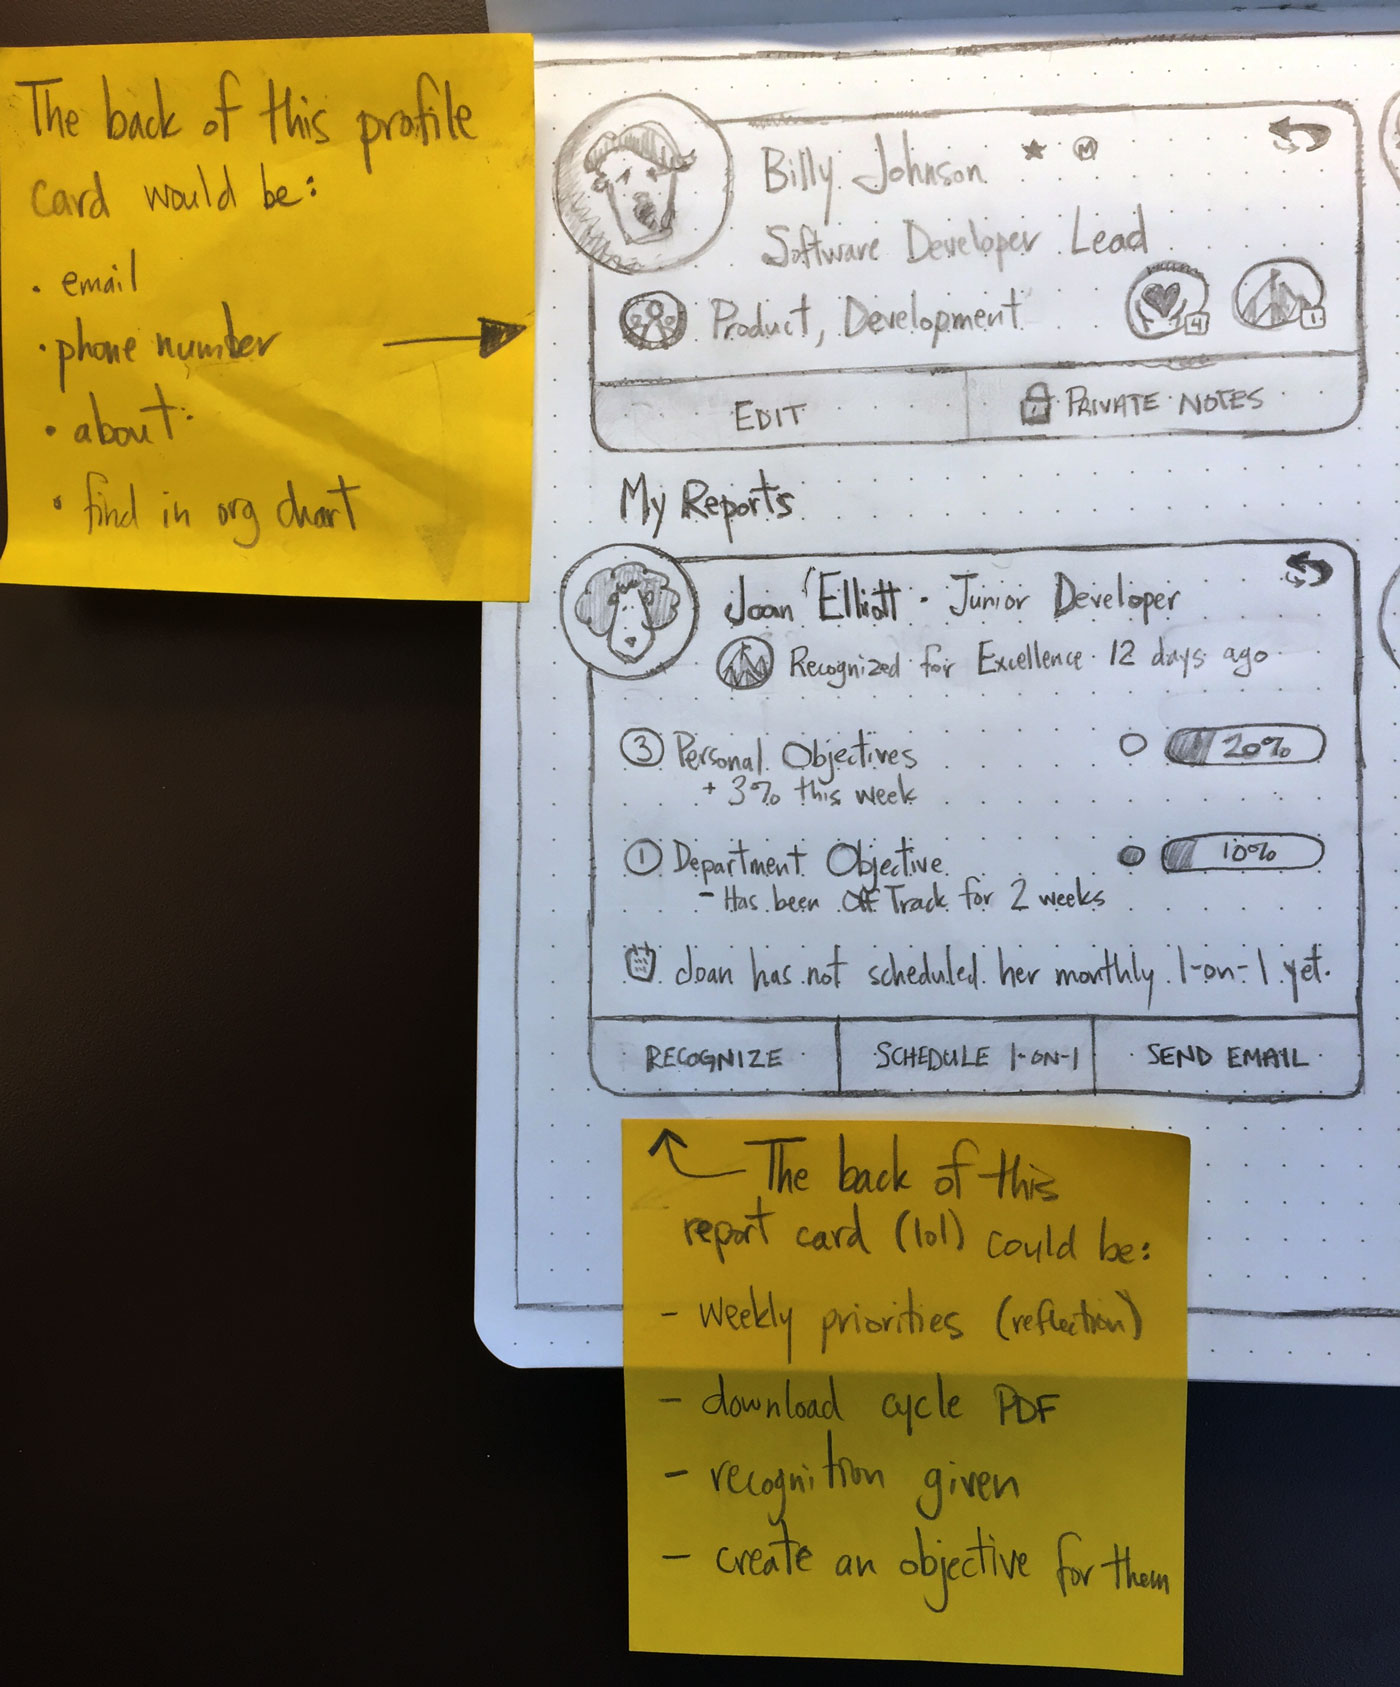 The back of this profile
card would be:
· email
· phone number
· about
· find in org chart
Billy Johnson ★ M
Software Developer Lead
Product, Development
4
1
EDIT
PRIVATE NOTES
My Reports
Joan Elliott · Junior Developer
Recognized for Excellence 12 days ago
3 Personal Objectives
20%
+ 3% this week
1 Department Objective
10%
- Has been Off Track for 2 weeks
Joan has not scheduled her monthly 1-on-1 yet.
RECOGNIZE
SCHEDULE 1-ON-1
SEND EMAIL
The back of this
report card (lol) could be:
- weekly priorities (reflection)
- download cycle PDF
- recognition given
- create an objective for them